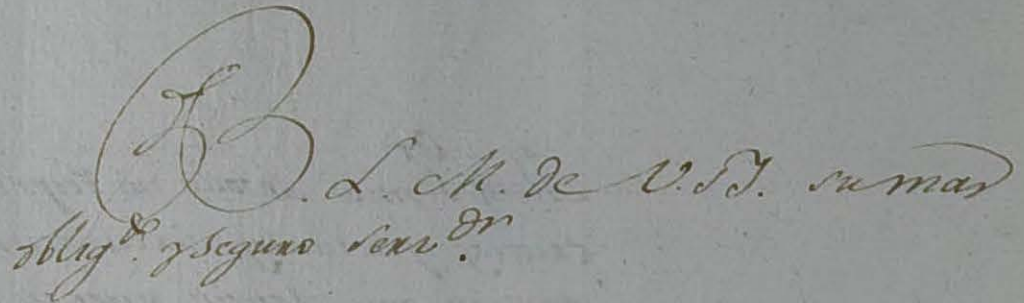 B. L. M. de V.SI. su mas
oblig.do y Seguro Serv.or